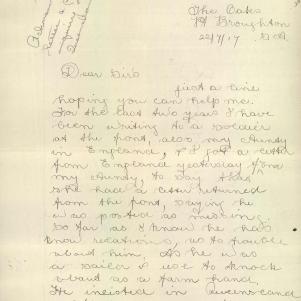 The Oaks
Pt Broughton
22/7/17 S.A.
Dear Sirs
just a line
hoping you can help me.
For the last two years I have
been writing to a soldier
at the front, also my Aunty
in England, & I got a letter
from England yesterday from
my Aunty, to say that
she had a letter returned
from the front, saying he
was posted as missing.
So far as I know he has
know relations, us to trouble
about him. As he was
a sailor & use to knock
about as a farm hand.
He inlisted in Queensland